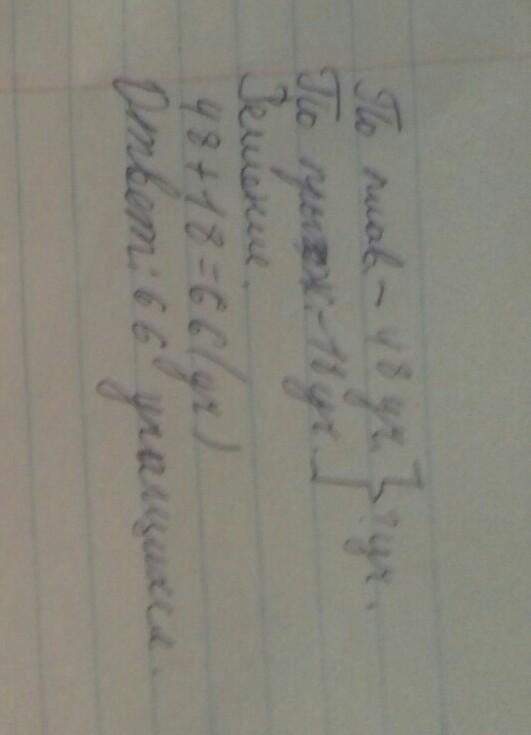 По плав. - 48 уч. } ? уч.
По прыж. - 18 уч.
Решение.
48+18=66(уч.)
Ответ: 66 учащихся.